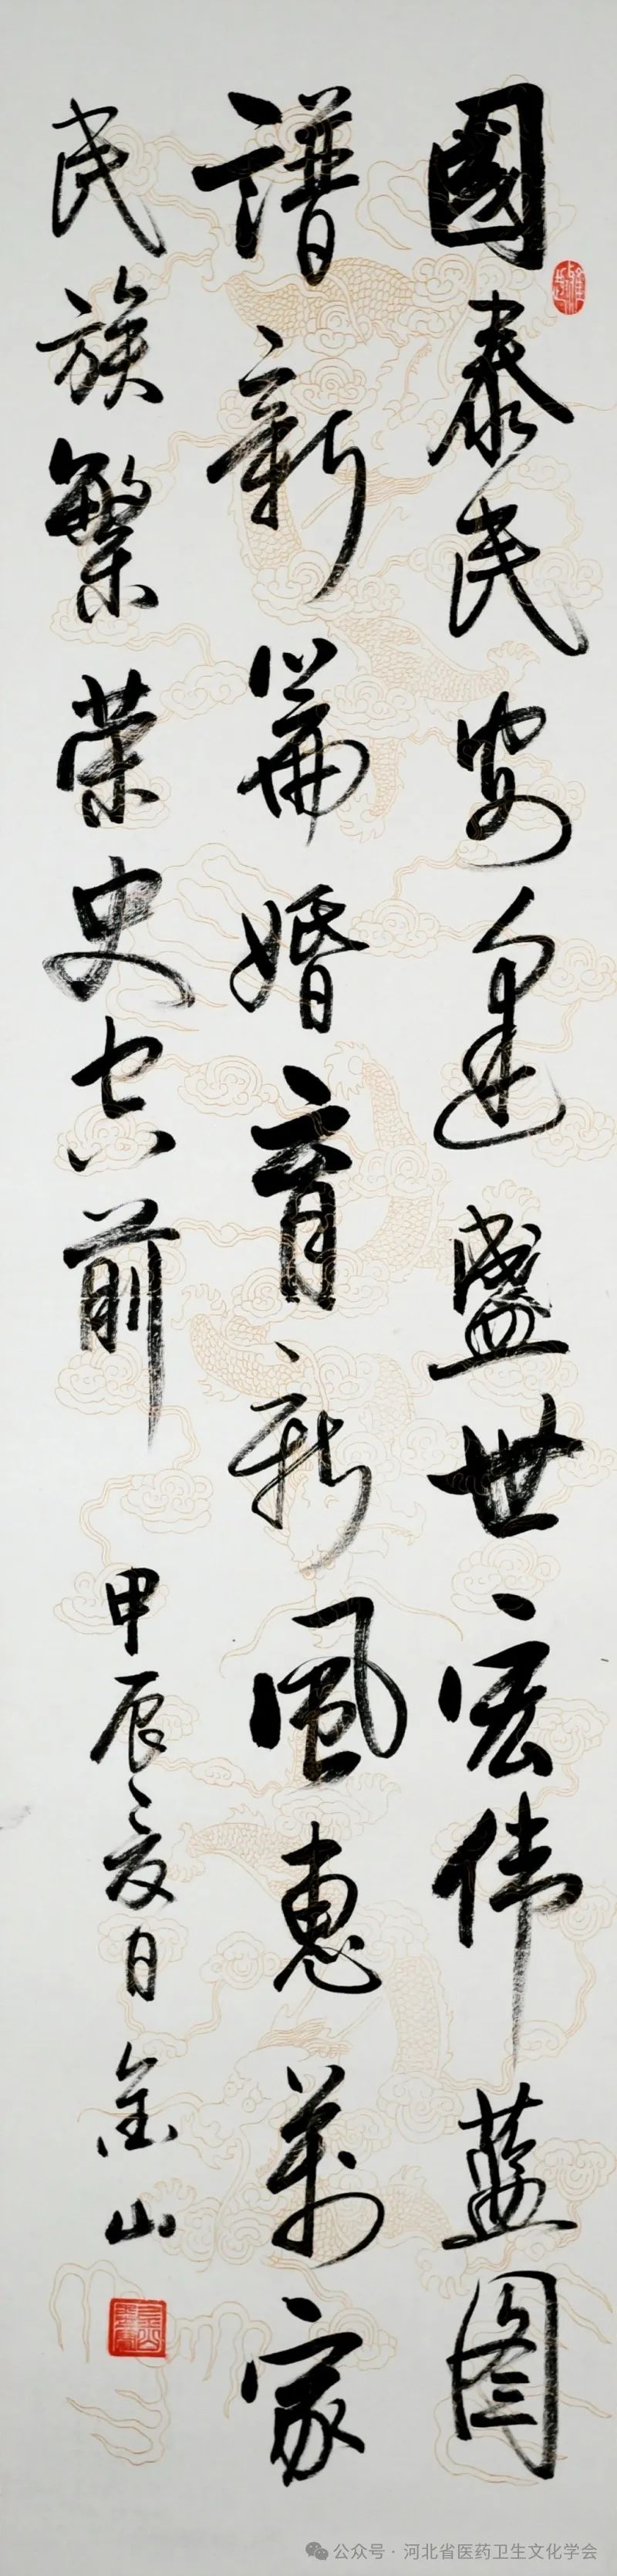 國泰民安逢盛世宏伟蓝图
譜新篇婚育新風惠萬家
民族繁荣史空前
甲辰夏日金山
公众号·河北省医药卫生文化学会